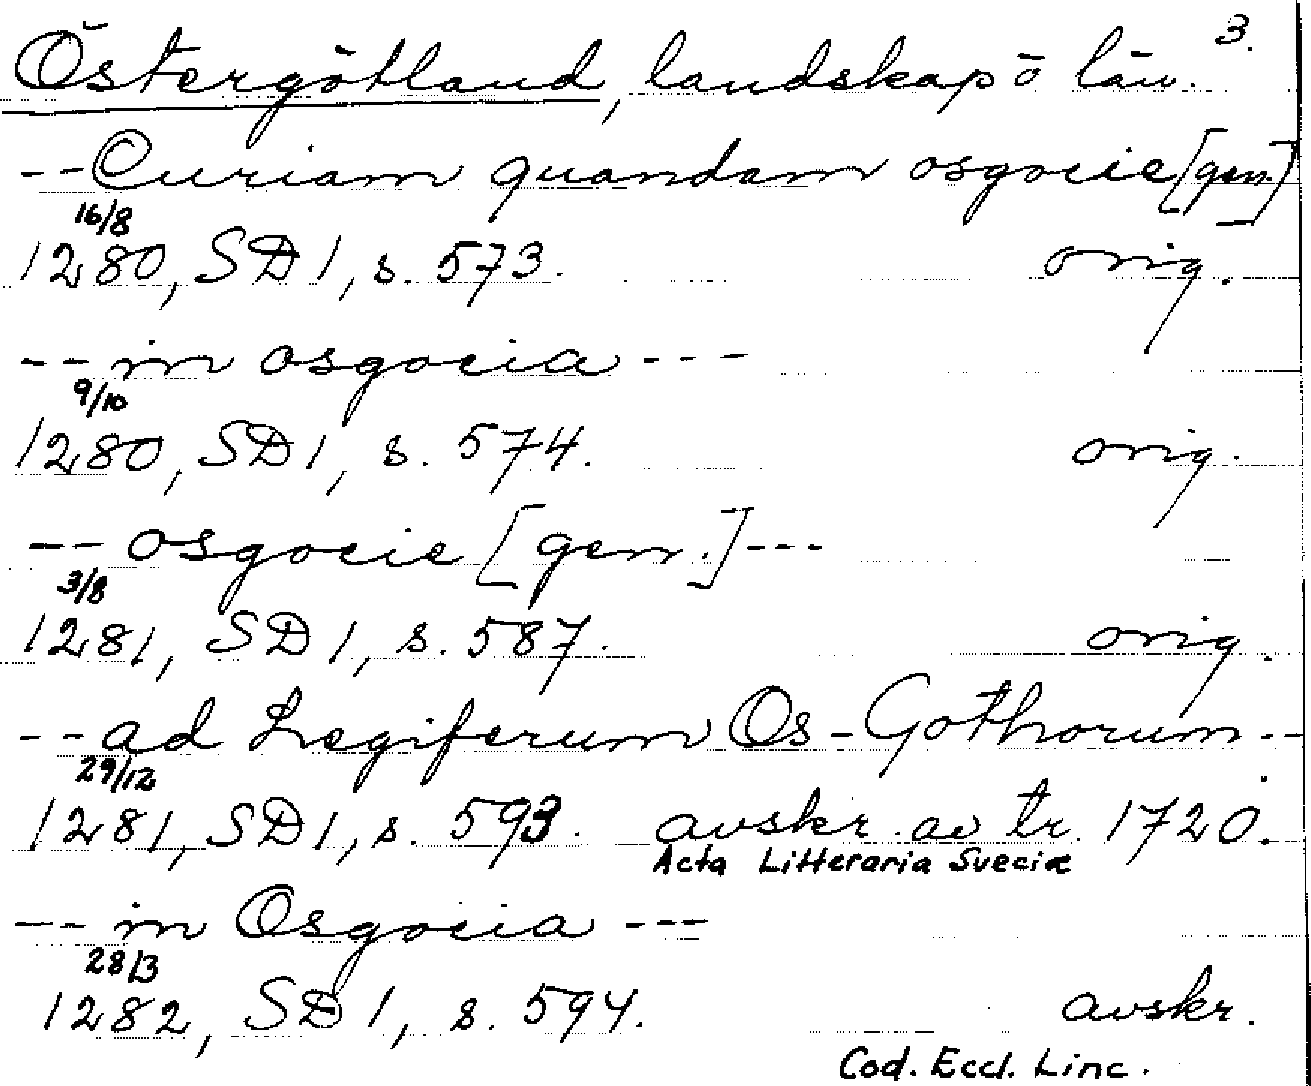 3.
Östergötland, landskap o län.
-- Curiam quandam osgocie [gen.]
16/8
1280, SD 1, s. 573. orig.
-- in osgocia ---
9/10
1280, SD 1, s. 574. orig.
-- osgocie [gen.] ---
3/8
1281, SD 1, s. 587. orig.
-- ad Legiferum Os-Gothorum --
29/12
1281, SD 1, s. 593. avskr. av tr. 1720.
Acta Litteraria Sueciæ
-- in Osgocia ---
28/3
1282, SD 1, s. 594. avskr.
Cod. Eccl. Linc.